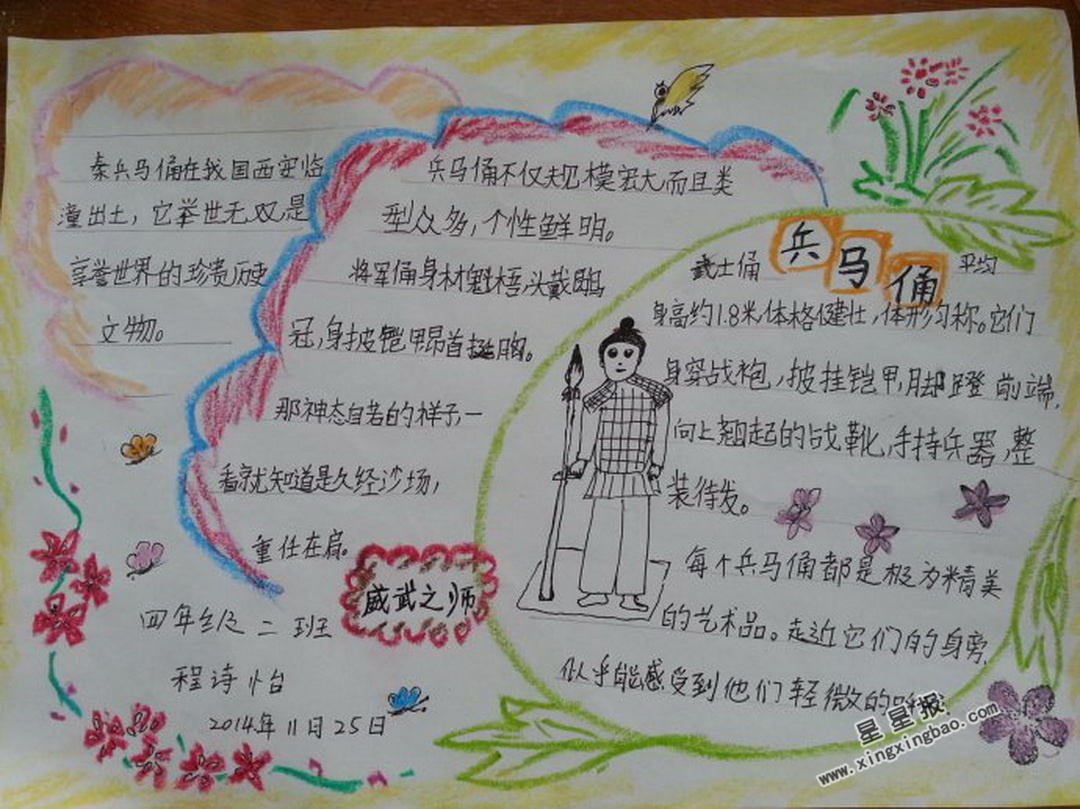 秦兵马俑在我国西安临
潼出土，它举世无双，是
享誉世界的珍贵历史
文物。
兵马俑不仅规模宏大而且类
型众多，个性鲜明。
将军俑身材魁梧头戴鶡
冠，身披铠甲昂首挺胸。
那神态自若的样子，一
看就知道是久经沙场，
重任在肩。
威武之师
四年级二班
程诗怡
2014年11月25日
兵马俑
武士俑 平均
身高约1.8米，体格健壮，体形匀称。它们
身穿战袍，披挂铠甲，脚蹬前端，
向上翘起的战靴，手持兵器，整
装待发。
每个兵马俑都是极为精美
的艺术品。走近它们的身旁，
似乎能感受到他们轻微的
星星报
www.xingxingbao.com